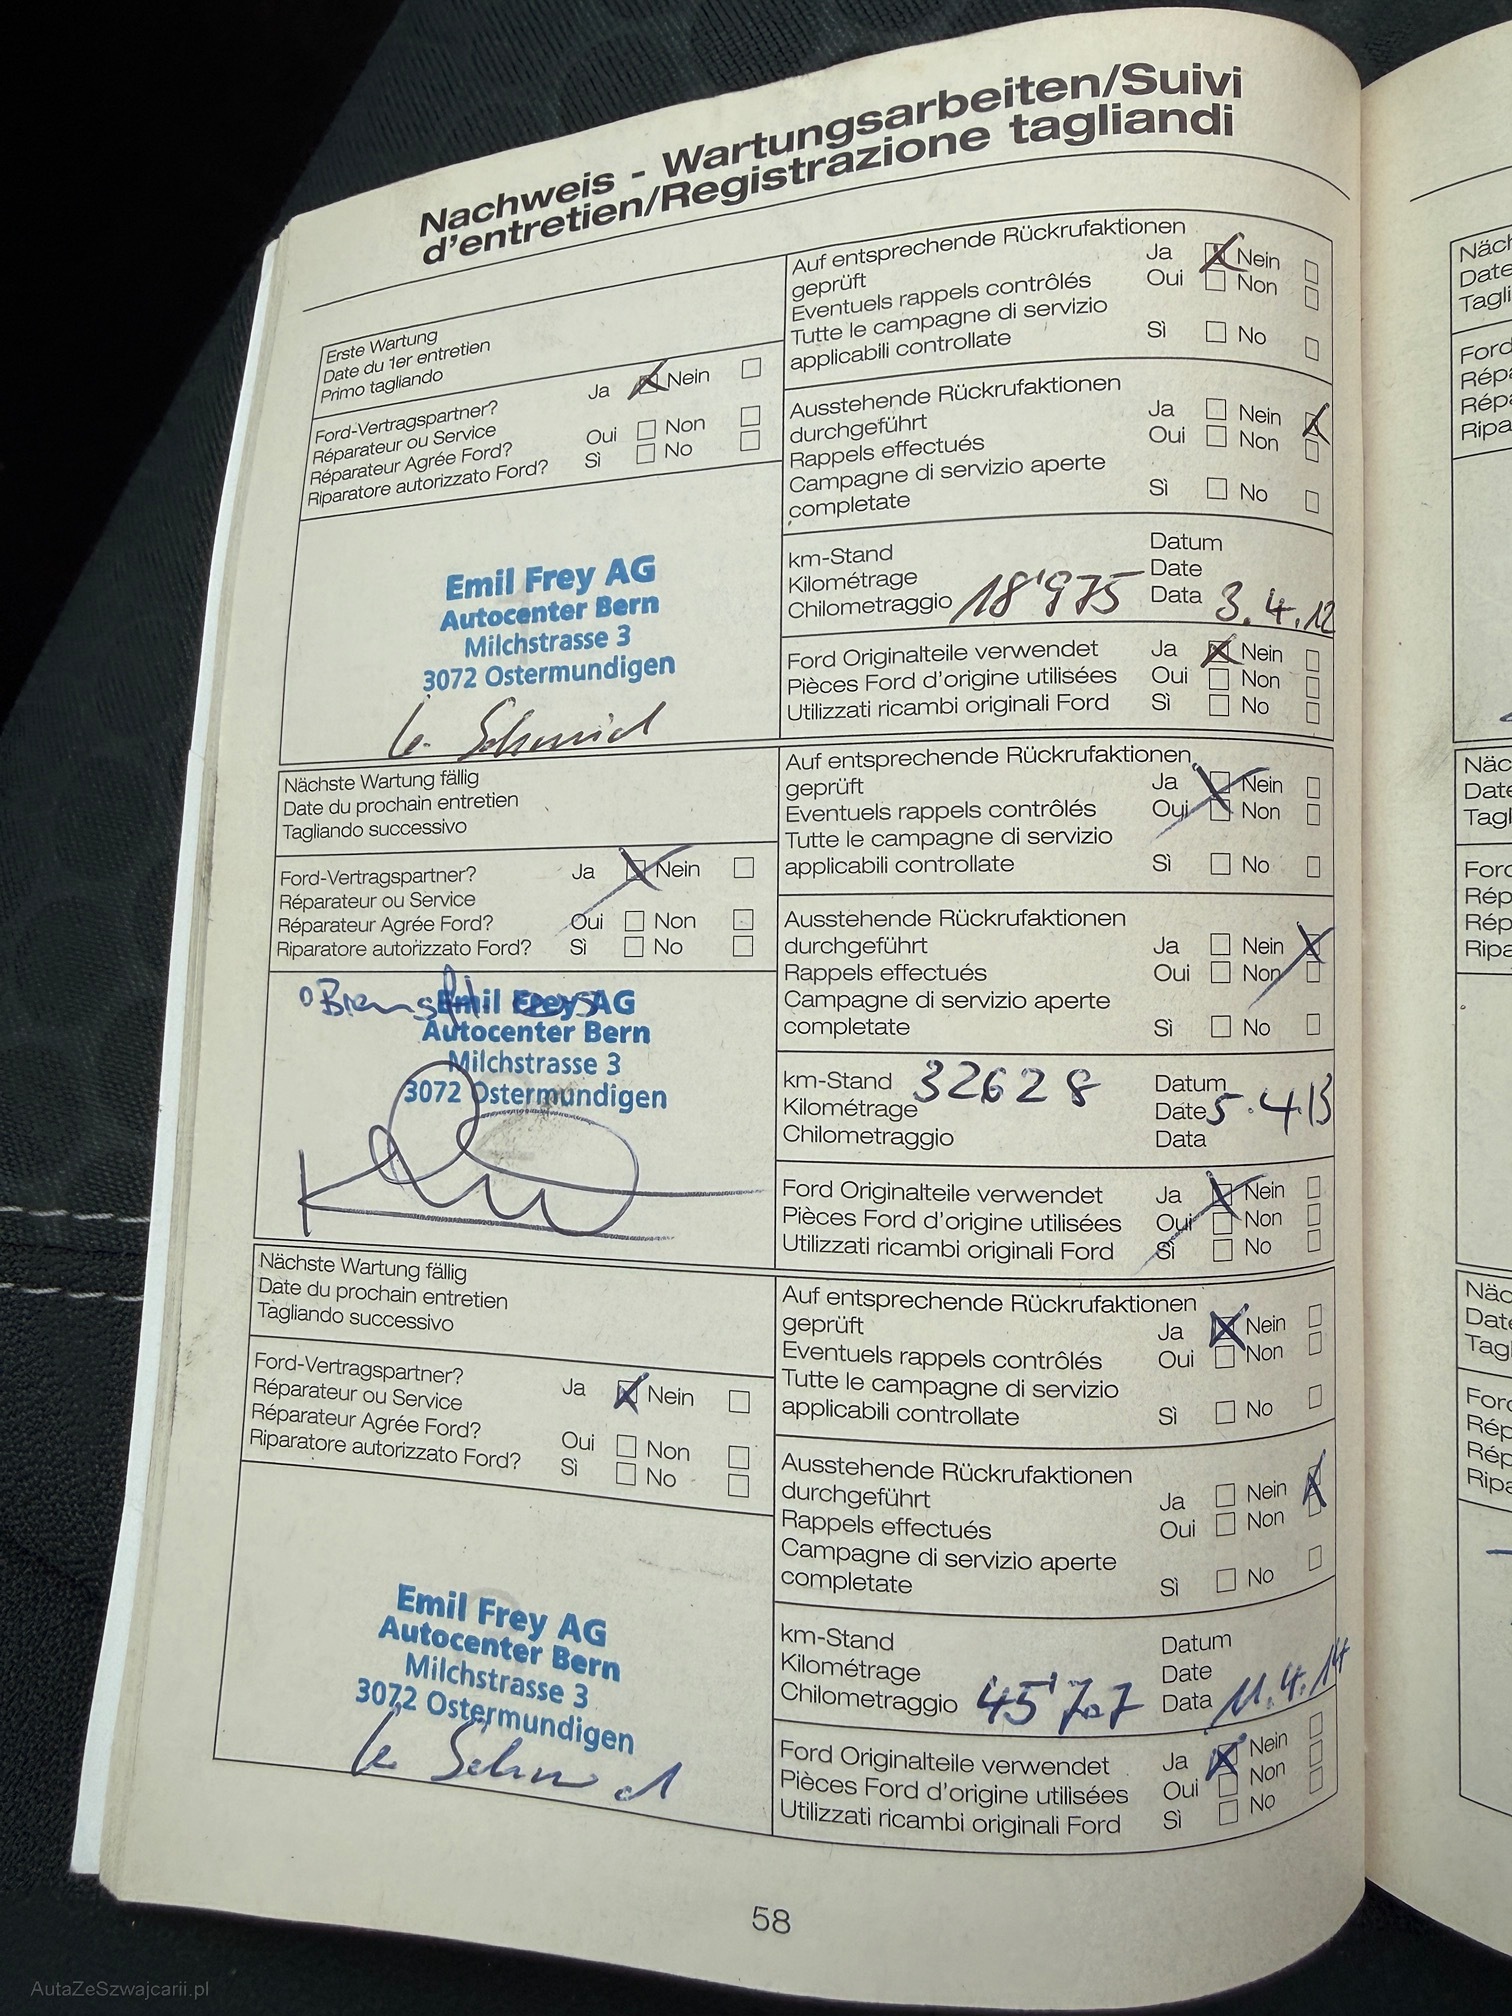 Nachweis - Wartungsarbeiten/Suivi
d'entretien/Registrazione tagliandi
Erste Wartung
Date du 1er entretien
Primo tagliando
Ford-Vertragspartner?
Réparateur ou Service
Réparateur Agrée Ford?
Riparatore autorizzato Ford?
Ja Nein
Oui Non
Sì No
Emil Frey AG
Autocenter Bern
Milchstrasse 3
3072 Ostermundigen
Auf entsprechende Rückrufaktionen
geprüft
Eventuels rappels contrôlés
Tutte le campagne di servizio
applicabili controllate
Ja Nein
Oui Non
Sì No
Ausstehende Rückrufaktionen
durchgeführt
Rappels effectués
Campagne di servizio aperte
completate
Ja Nein
Oui Non
Sì No
km-Stand
Kilométrage
Chilometraggio 18'975
Datum
Date
Data 3.4.12
Ford Originalteile verwendet
Pièces Ford d'origine utilisées
Utilizzati ricambi originali Ford
Ja Nein
Oui Non
Sì No
Nächste Wartung fällig
Date du prochain entretien
Tagliando successivo
Ford-Vertragspartner?
Réparateur ou Service
Réparateur Agrée Ford?
Riparatore autorizzato Ford?
Ja Nein
Oui Non
Sì No
Emil Frey AG
Autocenter Bern
Milchstrasse 3
3072 Ostermundigen
Auf entsprechende Rückrufaktionen
geprüft
Eventuels rappels contrôlés
Tutte le campagne di servizio
applicabili controllate
Ja Nein
Oui Non
Sì No
Ausstehende Rückrufaktionen
durchgeführt
Rappels effectués
Campagne di servizio aperte
completate
Ja Nein
Oui Non
Sì No
km-Stand 32628
Kilométrage
Chilometraggio
Datum
Date 5.4.13
Data
Ford Originalteile verwendet
Pièces Ford d'origine utilisées
Utilizzati ricambi originali Ford
Ja Nein
Oui Non
Sì No
Nächste Wartung fällig
Date du prochain entretien
Tagliando successivo
Ford-Vertragspartner?
Réparateur ou Service
Réparateur Agrée Ford?
Riparatore autorizzato Ford?
Ja Nein
Oui Non
Sì No
Emil Frey AG
Autocenter Bern
Milchstrasse 3
3072 Ostermundigen
Auf entsprechende Rückrufaktionen
geprüft
Eventuels rappels contrôlés
Tutte le campagne di servizio
applicabili controllate
Ja Nein
Oui Non
Sì No
Ausstehende Rückrufaktionen
durchgeführt
Rappels effectués
Campagne di servizio aperte
completate
Ja Nein
Oui Non
Sì No
km-Stand
Kilométrage
Chilometraggio 45'707
Datum
Date
Data 11.4.14
Ford Originalteile verwendet
Pièces Ford d'origine utilisées
Utilizzati ricambi originali Ford
Ja Nein
Oui Non
Sì No
58
AutaZeSzwajcarii.pl